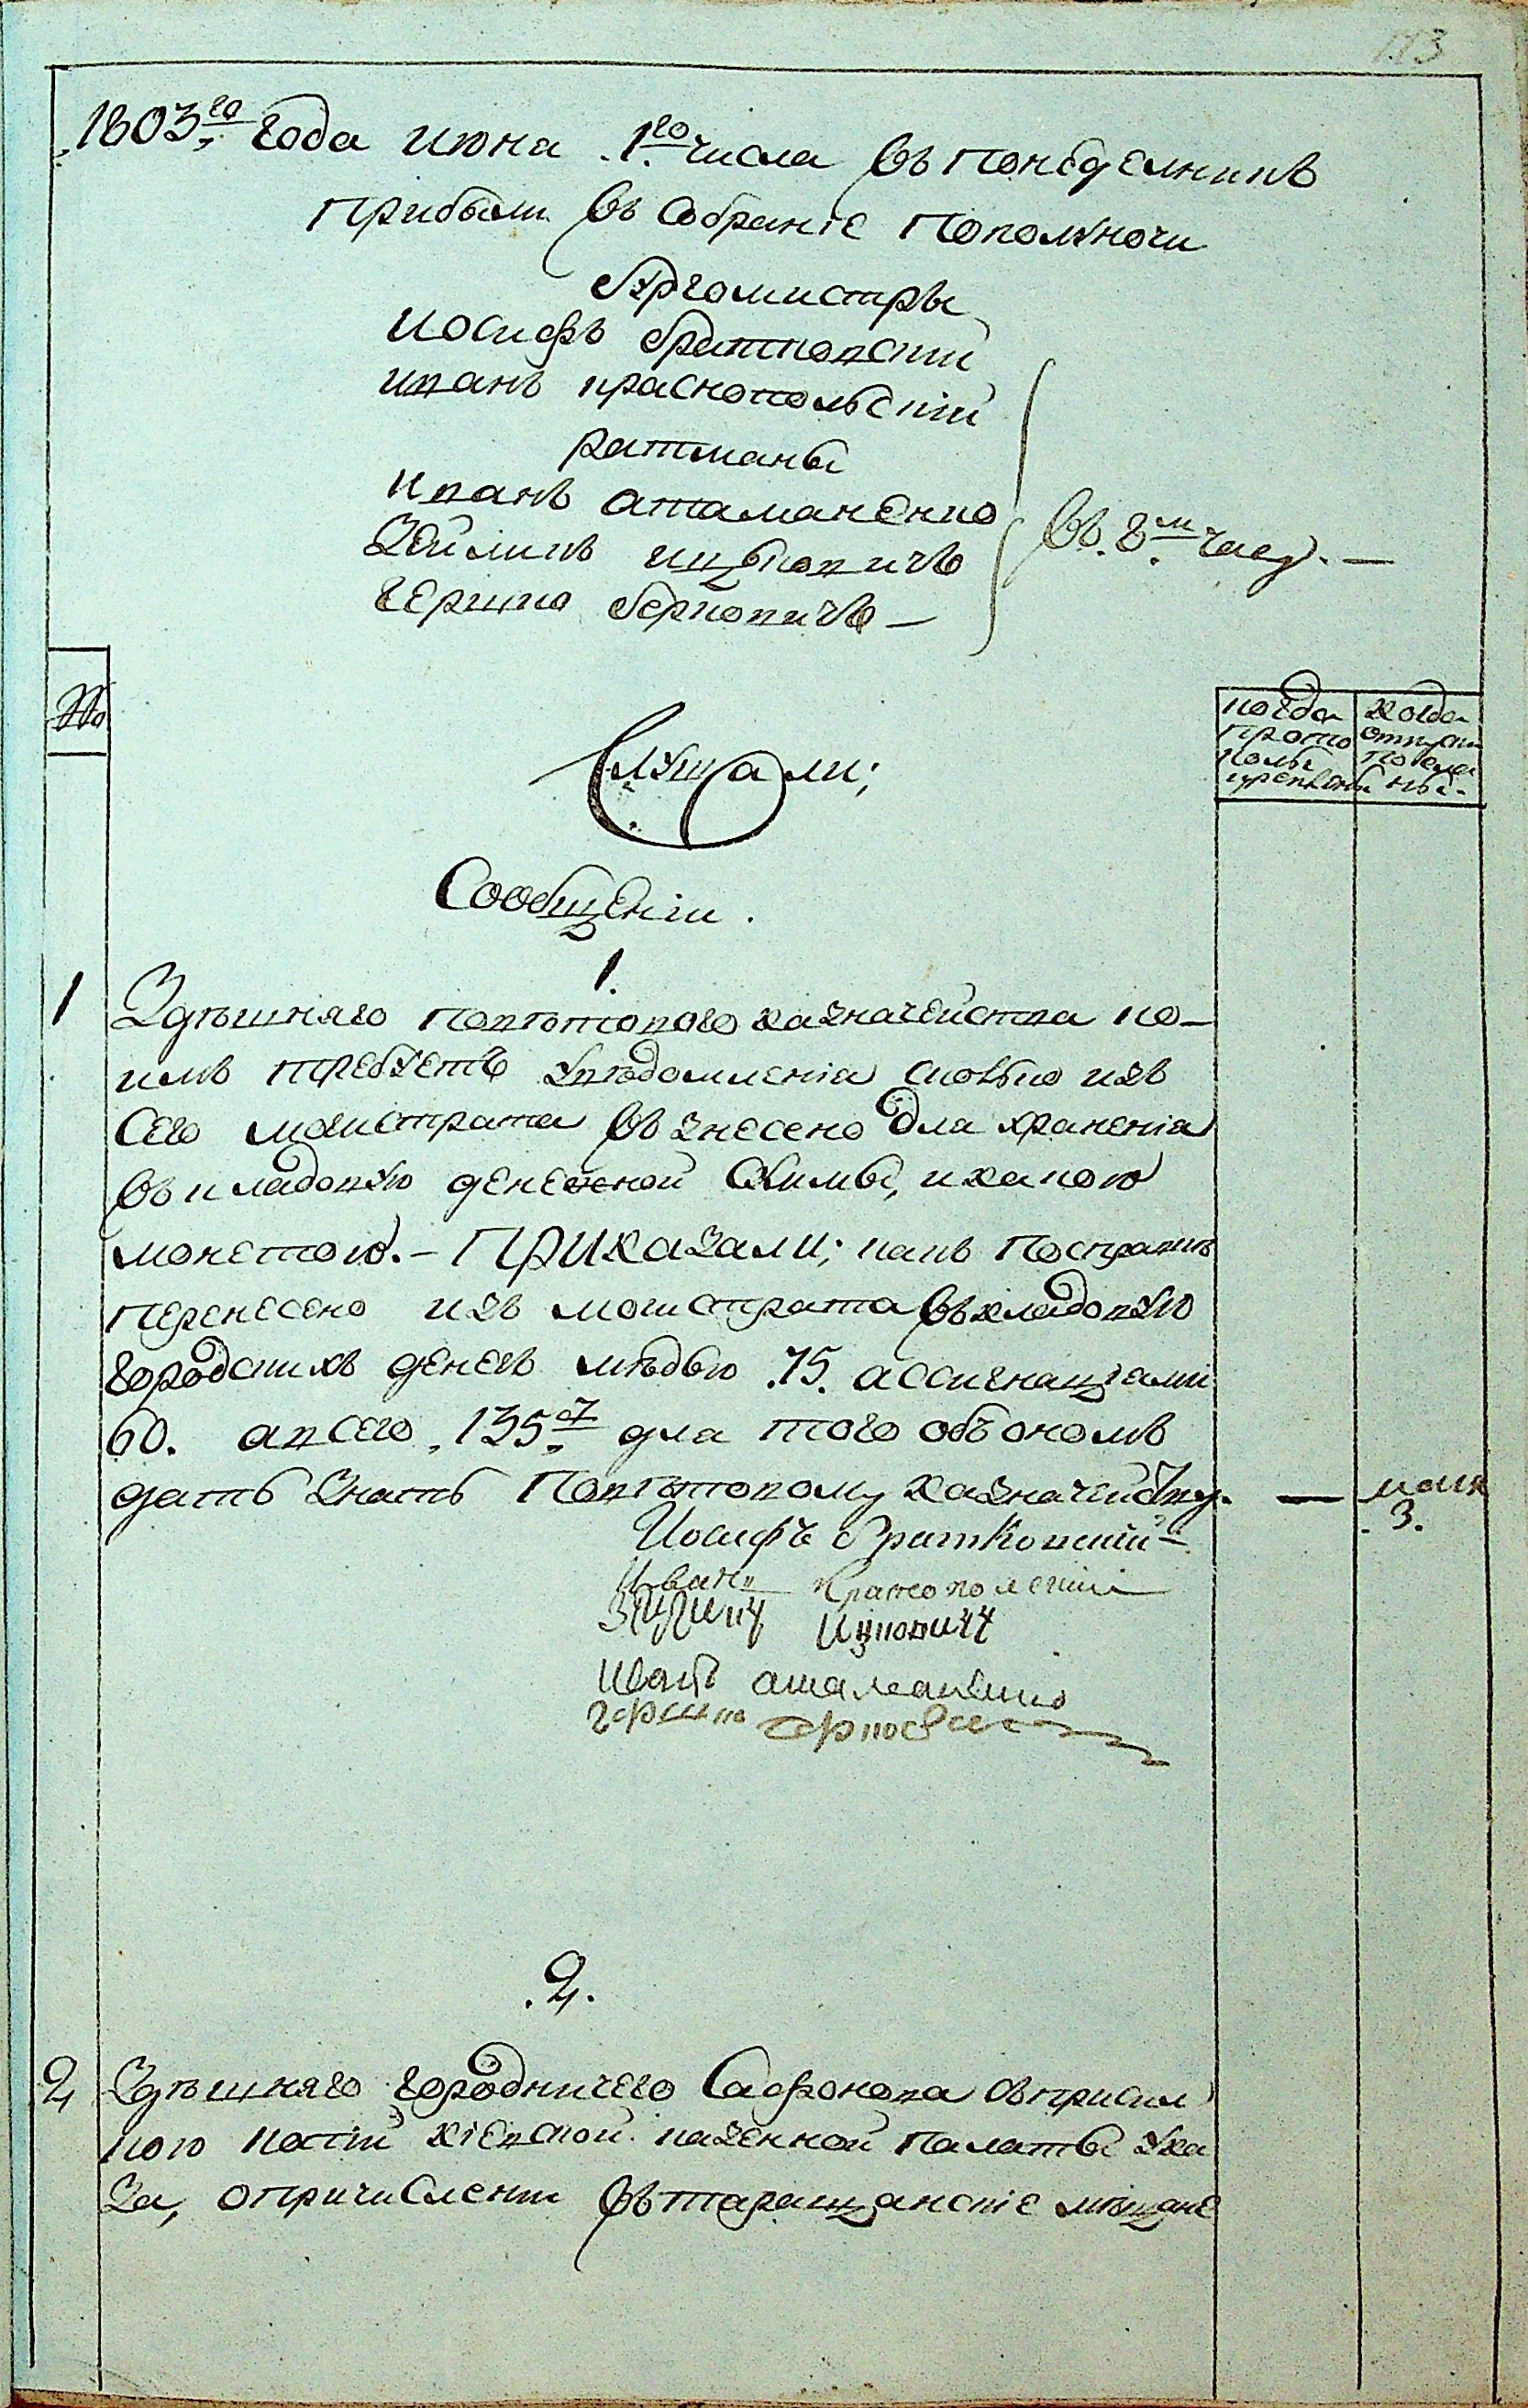 113
1803го года июня 1го числа въ понеделникъ
прибыли въ собраніе пополуночи
бургомистры
Иосифъ братковскій
иванъ краснопольскій
ратманы
иванъ атаманенко
Зейликъ ицковичъ
гершко берковичъ —
въ 8м часу. —
№
когда прото колы
когда отпуски
Слушали;
Сообщеніи.
1.
1 Здѣшняго повѣтового казначейства ко-
имъ требуетъ увѣдомленія сколько изъ
сего магистрата въ знесено для храненія
въ кладовую денежной суммы, и какою
монетою. – Приказали; какъ по справкѣ
перенесено изъ магистрата въ кладовую
городскихъ денегъ мѣдью 75. ассигнаціями
60. а всего 135. для того объ ономъ
дать знать повѣтовому казначейству. —
3.
Иосифъ братковскій
Иванъ краснополскій
Зейликъ Ицковичъ
Иванъ атаманенко
гершко берковичъ
2.
2 Здѣшняго городничего Сафонова съ присил
кою копіи кіевской казенной палаты ука
за, о причисленіи въ таращанскіе мѣщане